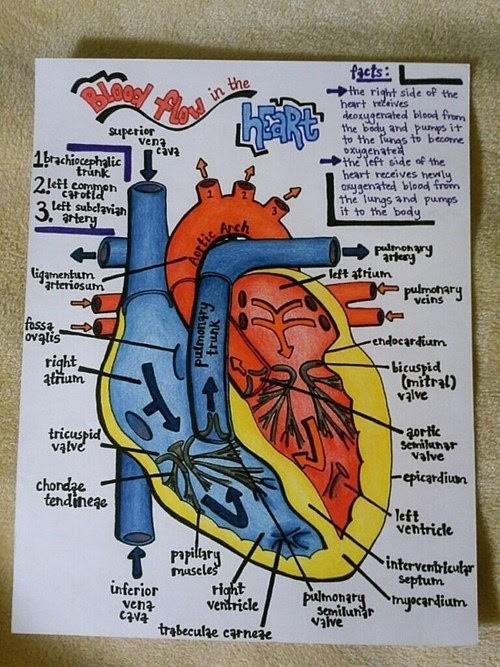 Blood flow in the
HEART
facts:
the right side of the
heart receives
deoxygenated blood from
the body and pumps it
to the lungs to become
oxygenated
the left side of the
heart receives newly
oxygenated blood from
the lungs and pumps
it to the body
superior
vena
cava
1. brachiocephalic
trunk
2. left common
carotid
3. left subclavian
artery
1
2
3
Aortic Arch
ligamentum
arteriosum
fossa
ovalis
right
atrium
tricuspid
valve
chordae
tendineae
inferior
vena
cava
papillary
muscles
right
ventricle
trabeculae carneae
pulmonary
trunk
pulmonary
artery
left atrium
pulmonary
veins
endocardium
bicuspid
(mitral)
valve
aortic
semilunar
valve
epicardium
left
ventricle
interventricular
septum
myocardium
pulmonary
semilunar
valve